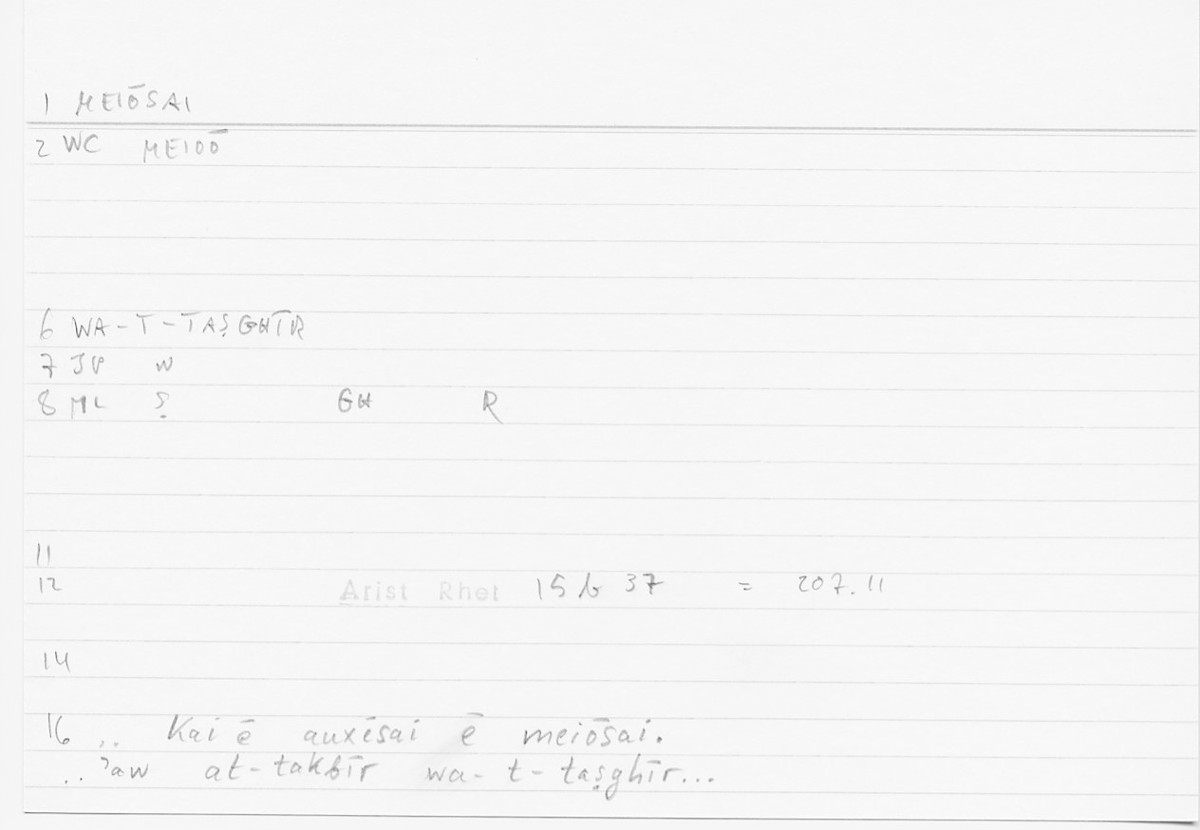 1 MEIŌSAI
2 WC MEIOŌ
6 WA-T-TAṢGHĪR
7 JV W
8 ML Ṣ GH R
11
12 Arist Rhet 15 b 37 = 207.11
14
16 .. Kai ē auxēsai ē meiōsai.
..ʾaw at-takbīr wa-t-taṣghīr...